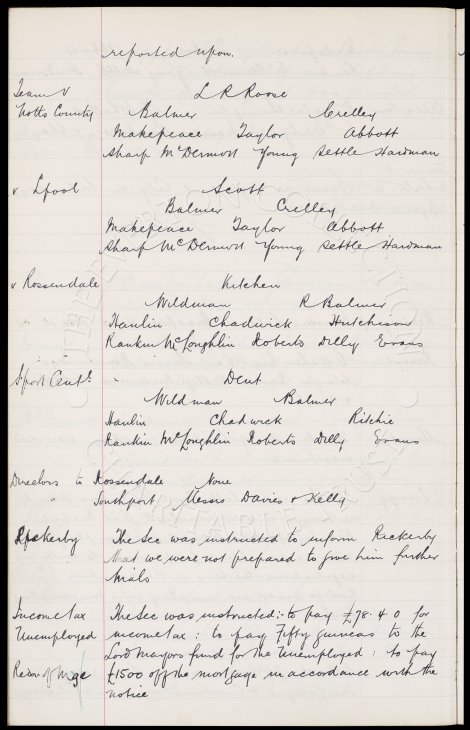 reported upon.
Team v L R Roose
Notts County Balmer Crelley
Makepeace Taylor Abbott
Sharp McDermott Young Settle Hardman
v Lpool Scott
Balmer Crelley
Makepeace Taylor Abbott
Sharp McDermott Young Settle Hardman
v Rossendale Kitchen
Wildman R Balmer
" Hamlin Chadwick Hutchison
Rankin McLoghlin Roberts Dilly Evans
Sport Centl " Dent
Wildman Balmer
Hamlin Chadwick Ritchie
Rankin McLoghlin Roberts Dilly Evans
Directors to Rossendale None
" Southport Messrs Davies & Kelly
Rickerby The Sec was instructed to inform Rickerby
that we were not prepared to give him further
trials
Income tax The Sec was instructed:- to pay £78. 4. 0 for
Unemployed income tax: to pay Fifty guineas to the
Lord Mayors fund for the Unemployed: to pay
Redn of Mge £1500 off the mortgage in accordance with the
notice